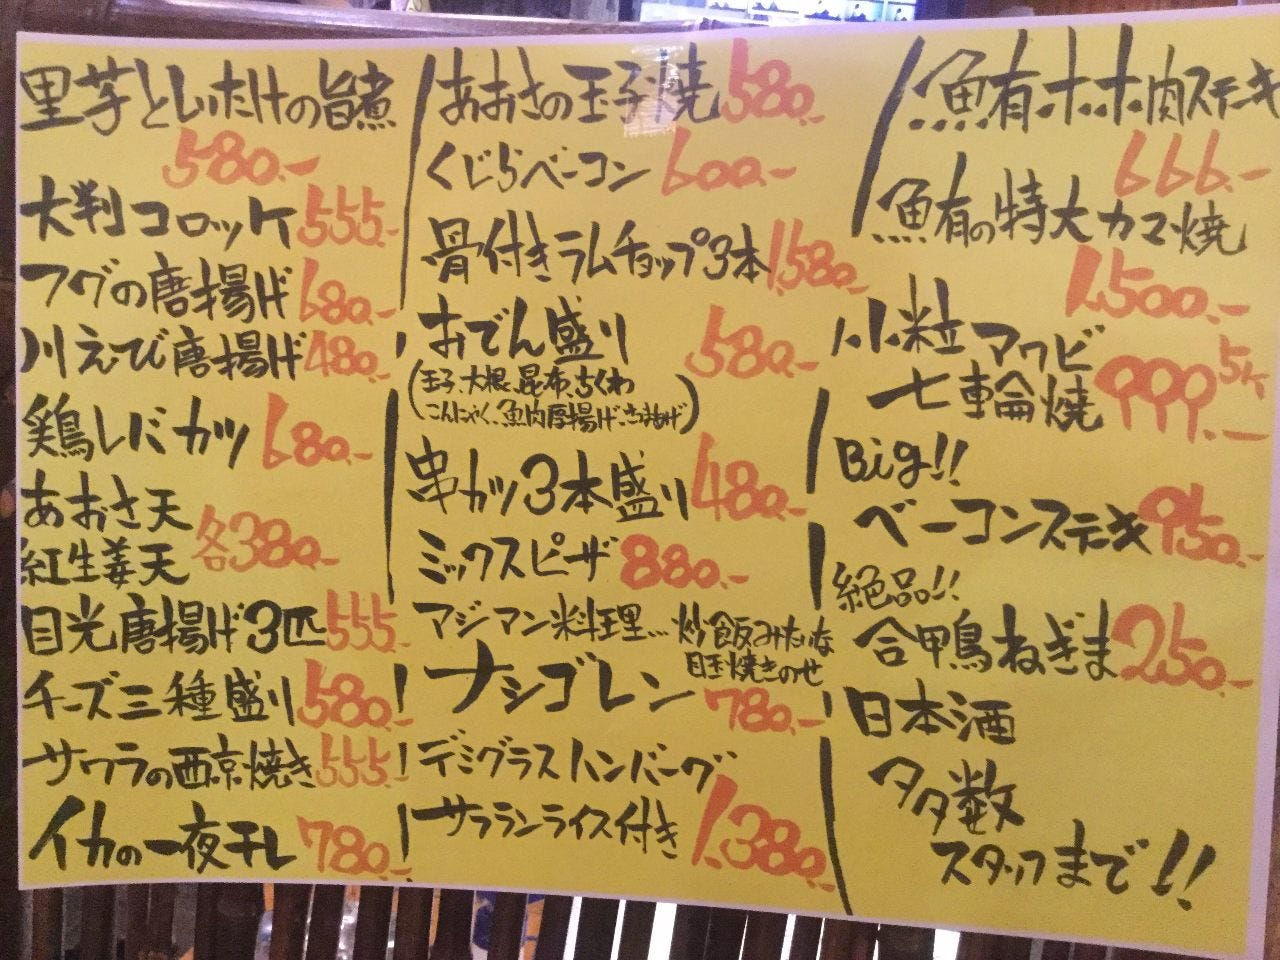 里芋としいたけの旨煮
580.-
大判コロッケ 555.-
フグの唐揚げ 680.-
川えび唐揚げ 480.-
鶏レバカツ 680.-
あおさ天
紅生姜天 各380.-
目光唐揚げ3匹 555.-
チーズ三種盛り 580.-
サワラの西京焼き 555.-
イカの一夜干し 780.-
あおさの玉子焼 580.-
くじらベーコン 600.-
骨付きラムチョップ3本 1,580.-
おでん盛り 580.-
(玉子、大根、昆布、ちくわ
こんにゃく、魚肉唐揚げ、)
串カツ3本盛り 480.-
ミックスピザ 880.-
マジマン料理… 炒飯みたいな
目玉焼きのせ
ナシゴレン 780.-
デミグラスハンバーグ
サラランライス付き 1,380.-
鮪ホホ肉ステーキ
666.-
鮪の特大カマ焼
1,500.-
小粒アワビ 5ヶ
七輪焼 999.-
Big!!
ベーコンステーキ 950.-
絶品!!
合鴨ねぎま 250.-
日本酒
多数
スタッフまで!!